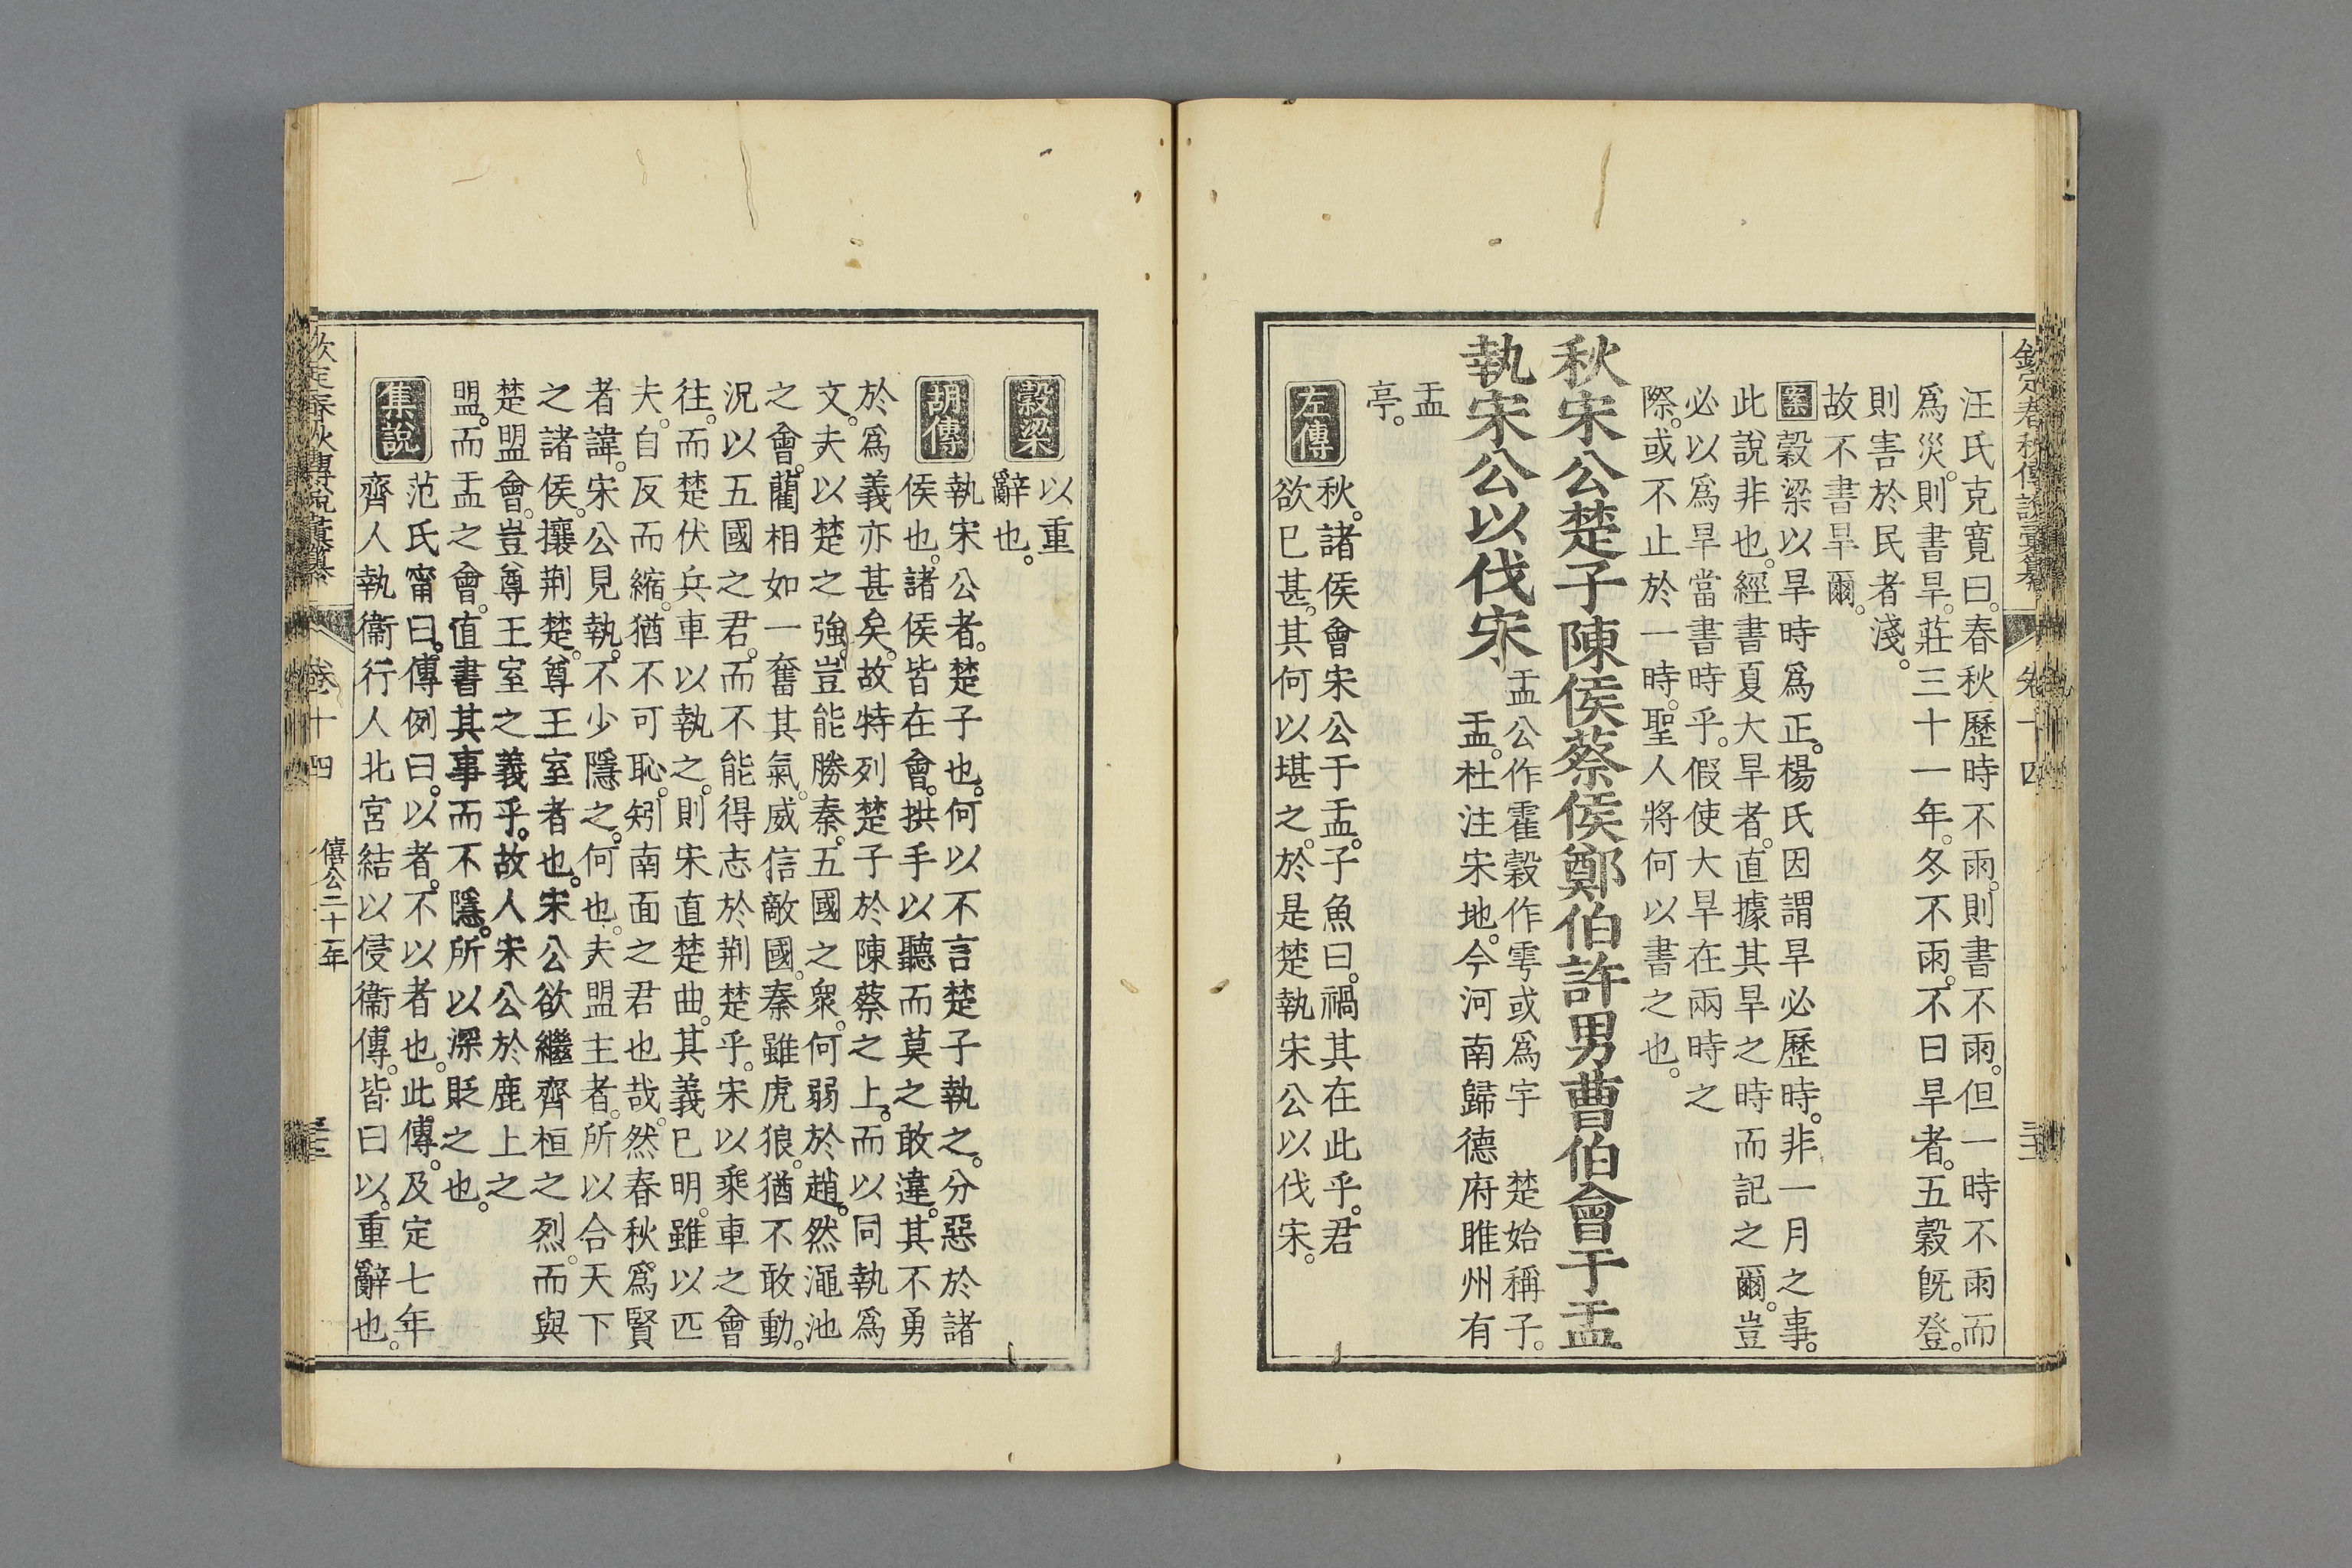 欽定春秋傳說彙纂 卷十四 三三
汪氏克寬曰。春秋歷時不雨。則書不雨。但一時不雨而
爲災。則書旱。莊三十一年。冬不雨。不曰旱者。五穀旣登。
則害於民者淺。
故不書旱爾。
案穀梁以旱時爲正。楊氏因謂旱必歷時。非一月之事。
此說非也。經書夏大旱者。直據其旱之時而記之爾。豈
必以爲旱當書時乎。假使大旱在兩時之
際。或不止於一時。聖人將何以書之也。
秋宋公楚子陳侯蔡侯鄭伯許男曹伯會于盂
執宋公以伐宋
盂公作霍穀作雩或爲宇 楚始稱子。
盂。杜注宋地。今河南歸德府睢州有
盂
亭。
左傳
秋。諸侯會宋公于盂。子魚曰。禍其在此乎。君
欲已甚。其何以堪之。於是楚執宋公以伐宋。
穀梁
以重
辭也。
胡傳
執宋公者。楚子也。何以不言楚子執之。分惡於諸
侯也。諸侯皆在會。拱手以聽而莫之敢違。其不勇
於爲義亦甚矣。故特列楚子於陳蔡之上。而以同執爲
文。夫以楚之強。豈能勝秦。五國之衆。何弱於趙。然澠池
之會。藺相如一奮其氣。威信敵國。秦雖虎狼。猶不敢動。
況以五國之君。而不能得志於荆楚乎。宋以乘車之會
往。而楚伏兵車以執之。則宋直楚曲。其義已明。雖以匹
夫。自反而縮。猶不可恥。矧南面之君也哉。然春秋。爲賢
者諱。宋公見執。不少隱之。何也。夫盟主者。所以合天下
之諸侯。攘荆楚。尊王室者也。宋公欲繼齊桓之烈。而與
楚盟會。豈尊王室之義乎。故人宋公於鹿上之
盟。而盂之會。直書其事而不隱。所以深貶之也。
集說
范氏甯曰。傳例曰。以者。不以者也。此傳。及定七年
齊人執衞行人北宮結以侵衞傳。皆曰以。重辭也。
欽定春秋傳說彙纂 卷十四 僖公二十一年